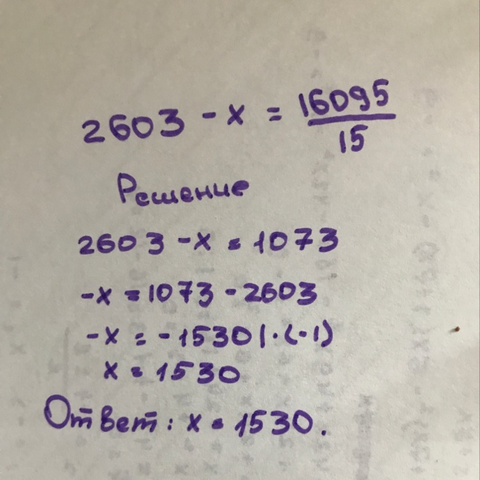 2603 - x = 16095/15
Решение
2603 - x = 1073
-x = 1073 - 2603
-x = -1530 | · (-1)
x = 1530
Ответ: x = 1530.